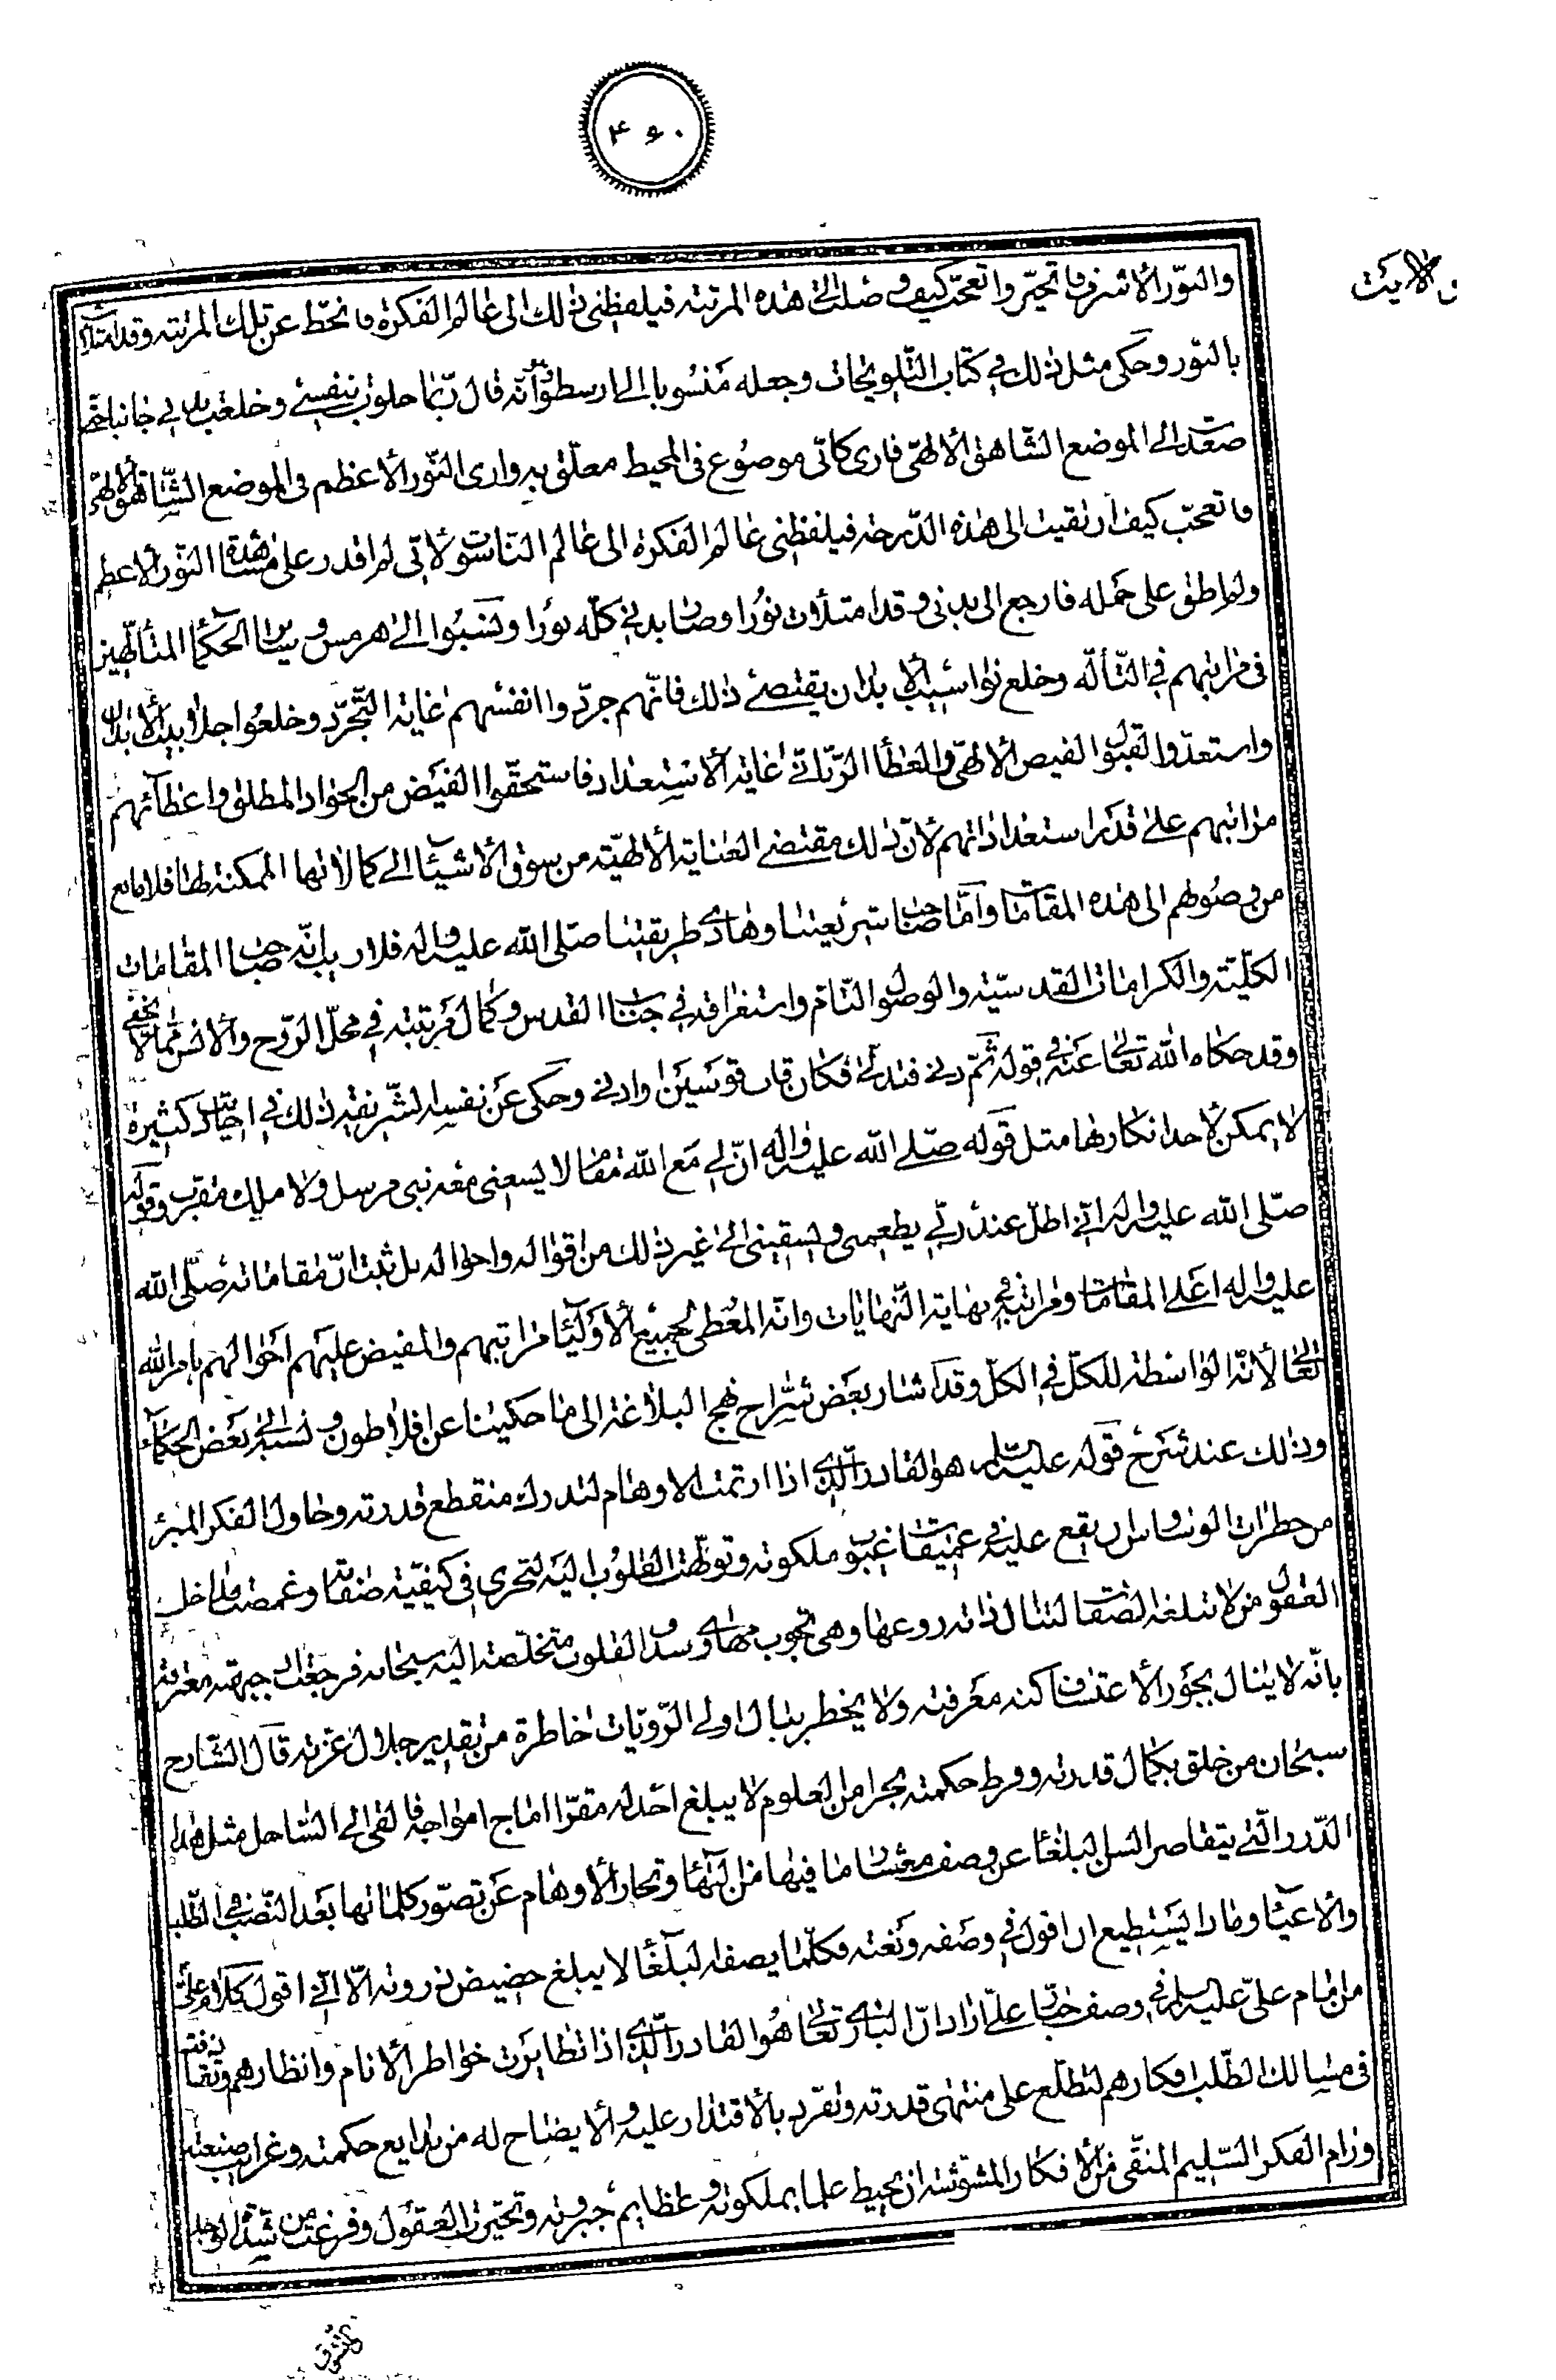 ۴۶۰
والنّور الأشرف فاتحيّر واتعجّب كيف وصلت الى هذه المرتبة فيلفظني ذلك الى عالم الفكرة فانحطّ عن تلك المرتبة وقد امتلأت
بالنّور وحكى مثل ذلك في كتاب التّلويحات وجعله منسوبا الى ارسطو وأنّه قال ربّما خلوت بنفسي وخلعت بدني جانبا حتى
صعدت الى الموضع الشّاهق الألهي فارى كانّي موضوع في المحيط معلّق به وارى النّور الأعظم في الموضع الشّاهق الألهي
فاتعجّب كيف ارتقيت الى هذه الدّرجة فيلفظني عالم الفكرة الى عالم النّاسوت لانّي لم اقدر على مشاهدة النّور الأعظم
ولم اطق على حمله فارجع الى بدني وقد امتلأت نورا وصار بدني كلّه نورا ونسبوا الى هرمس وسائر الحكماء المتألّهين
في مراتبهم في التّألّه وخلع نواسيت الأبدان يقتضي ذلك فانّهم جرّدوا انفسهم غاية التّجرّد وخلعوا جلابيب الأبدان
واستعدّوا لقبول الفيض الألهي والعطاء الرّبّاني غاية الأستعداد فاستحقّوا الفيض من الجواد المطلق واعطائهم
مراتبهم على قدر استعداداتهم لأنّ ذلك مقتضى العناية الألهيّة من سوق الأشياء الى كمالاتها الممكنة لها فلا مانع
من وصولهم الى هذه المقامات وأمّا صاحب شريعتنا وهادي طريقتنا صلّى الله عليه واله فلا ريب انّه صاحب المقامات
الكلّيّة والكرامات القدسيّة والوصول التّام واستغراقه في جناب القدس وكمال غربته في محلّ الرّوح والأنس ممّا لا يخفى
وقد حكاه الله تعالى عنه في قوله ثمّ دنى فتدلّى فكان قاب قوسين او ادنى وحكى عن نفسه الشّريفة ذلك في احاديث كثيرة
لا يمكن لأحد انكارها مثل قوله صلّى الله عليه واله انّ لي مع الله مقاما لا يسعني معه نبي مرسل ولا ملك مقرّب وقوله
صلّى الله عليه واله انّي اظلّ عند ربّي يطعمني ويسقيني الى غير ذلك من اقواله واحواله بل ثبت انّ مقاماته صلّى الله
عليه واله اعلى المقامات ومراتبه نهاية النّهايات وانّه المعطي لجميع الأولياء مراتبهم والمفيض عليهم احوالهم بامر الله
تعالى لأنّه الواسطة للكلّ في الكلّ وقد اشار بعض شرّاح نهج البلاغة الى ما حكيناه عن افلاطون ونسبه الى بعض الحكماء
وذلك عند شرح قوله عليه السلام هو القادر الّذي اذا ارتمت الاوهام لتدرك منقطع قدرته وحاول الفكر المبرّء
من خطرات الوساوس ان يقع عليه في عميقات غيوب ملكوته وتولّهت القلوب اليه لتجري في كيفيّة صفاته وغمضت مداخل
العقول من لا تبلغه الصّفات لتنال ذاته ردعها وهي تجوب مهاوي سدف الغلوب متخلّصة اليه سبحانه فرجعت اذ جبهت معترفة
بانّه لا ينال بجور الأعتساف كنه معرفته ولا يخطر ببال اولي الرّويّات خاطرة من تقدير جلال عزّته قال الشّارح
سبحان من خلق بكمال قدرته وفرط حكمته بحرا من العلوم لا يبلغ احد له مقرّا اماج امواجه فالقى الى السّاحل مثل هذه
الدّرر الّتي يتقاصر السن البلغاء عن وصف معشار ما فيها من البهاء وتحار الأوهام عن تصوّر كلماتها بعد النّصب في الطّلب
والأعياء وماذا يستطيع ان اقول في وصفه ونعته فكلّما يصفه البلغاء لا يبلغ حضيض ذروته الّا انّي اقول كلام علي
من امام عليّ عليه السلام في وصف جناب عليّ اراد انّ الباري تعالى هو القادر الّذي اذا تطايرت خواطر الأنام وانظارهم وتقاذفت
في مسالك الطّلب افكارهم لتطّلع على منتهى قدرته وتفرّد بالأقتدار عليه والأيضاح له من بدايع حكمته وغرايب صنعته
ورام الفكر السّليم المنقّى من الأفكار المشوّشة ان يحيط علما بملكوته وعظايم جبروته وتحيّرت العقول وفزعت من شدّة الوجل